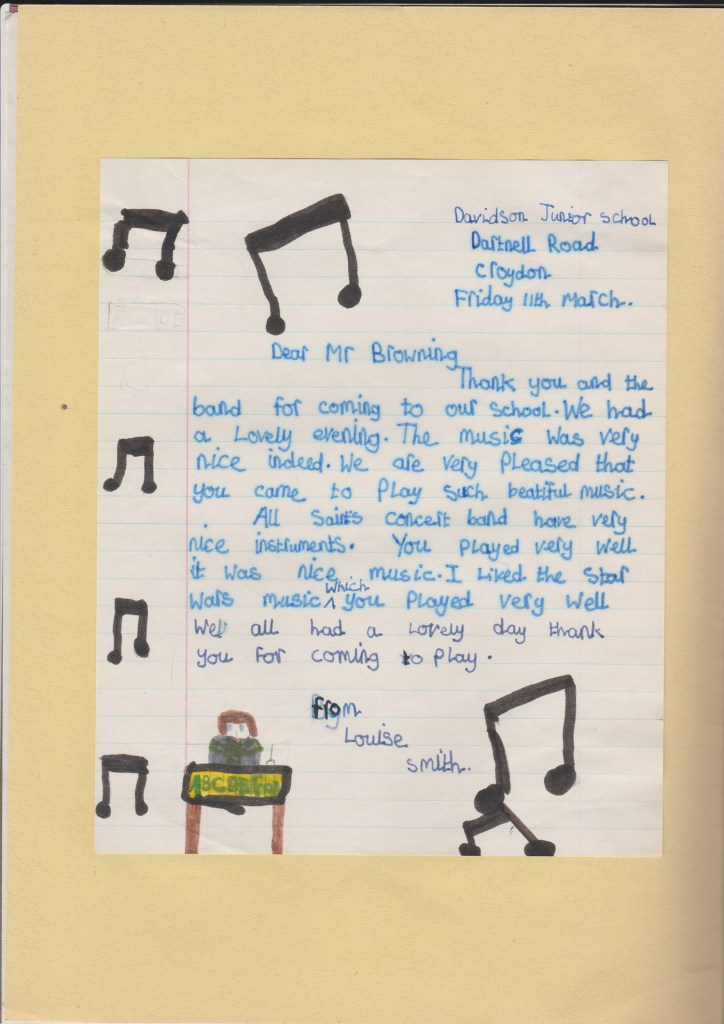 Davidson Junior School
Dartnell Road
Croydon
Friday 11th March.
Dear Mr Browning
Thank you and the
band for coming to our school. We had
a Lovely evening. The music was very
nice indeed. We are very Pleased that
you came to Play such beatiful music.
All Saints concert band have very
nice instruments. You played very well
it was nice music. I Liked the Star
Wars music which you Played very well
We all had a Lovely day thank
you for coming to play.
from
Louise
Smith.